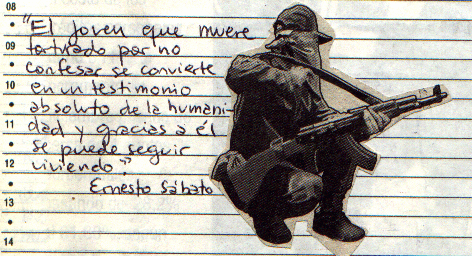 08
"El joven que muere
09 torturado por no
confesar se convierte
10 en un testimonio
absoluto de la humani-
11 dad y gracias a él
se puede seguir
12 viviendo".
Ernesto Sábato
13
14